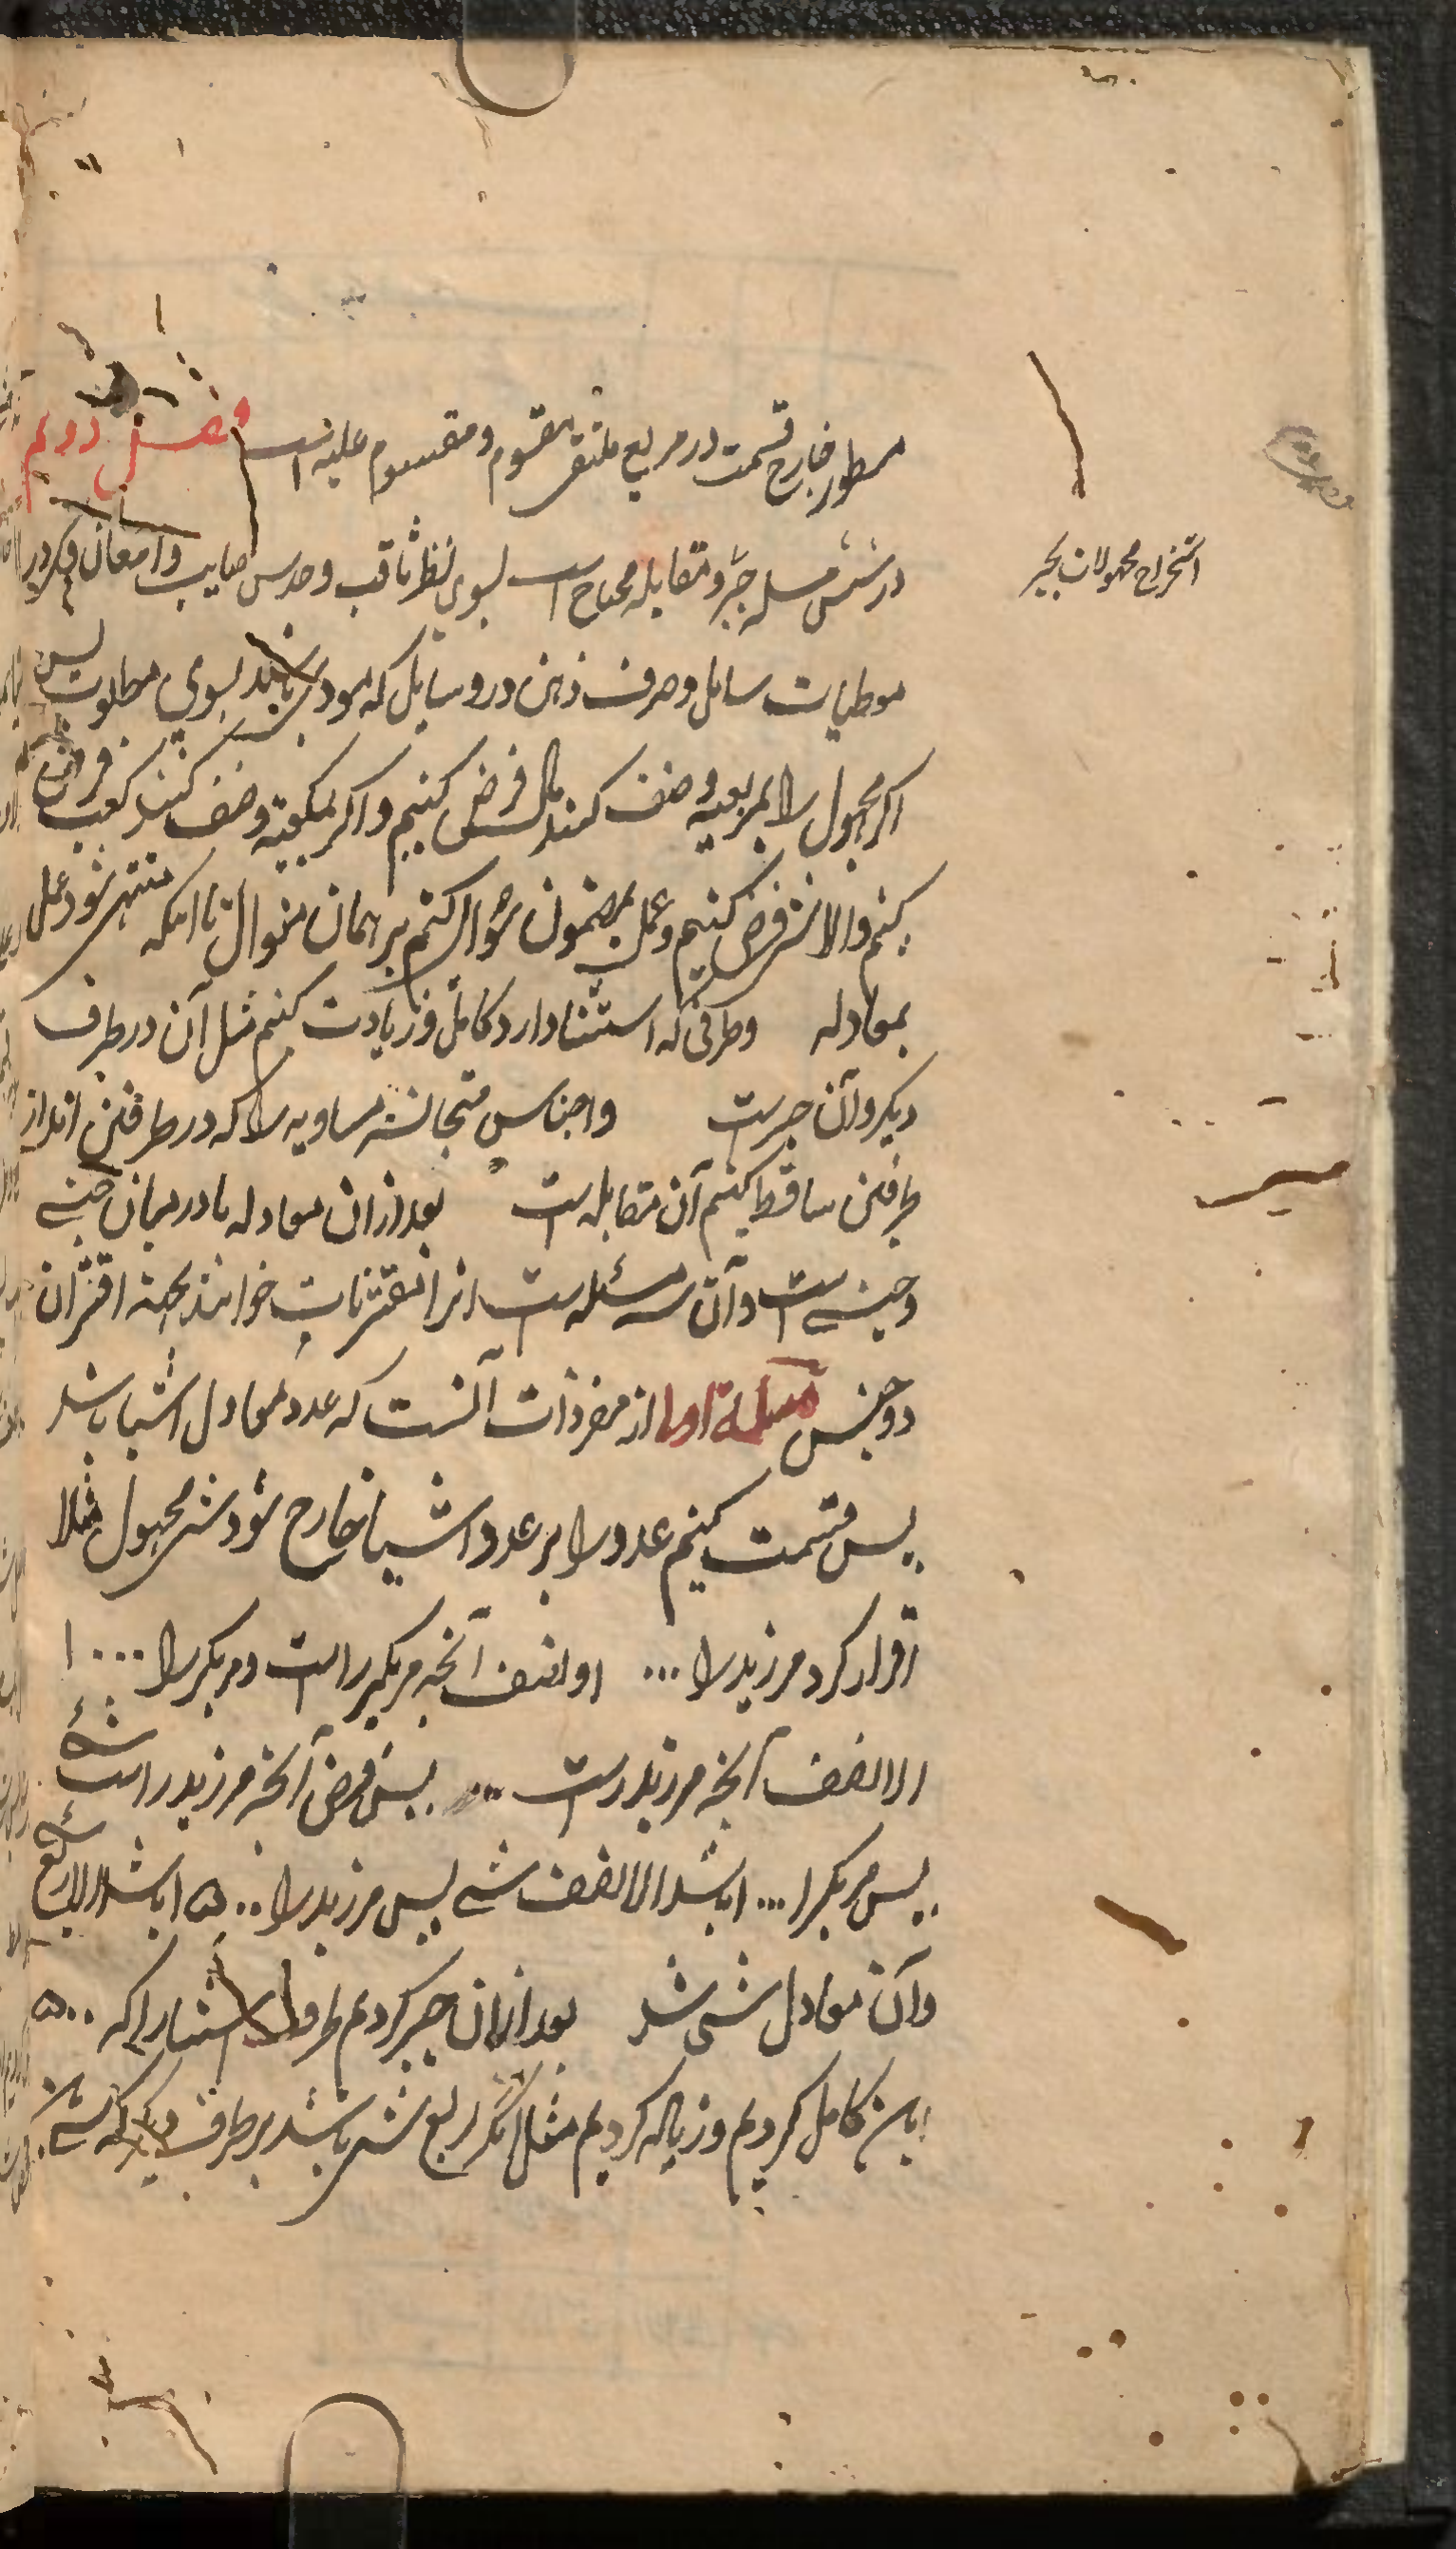 مسطور خارج قسمت در مربع ملتقی مقسوم و مقسوم علیه است فصل دویم
در شش مسله جبر و مقابله محتاج است بسوی نظر ثاقب و حدس صایب و امعان فکر در
استخراج مجهولات بجبر
موطیات سایل و صرف ذهن در وسایل که مودی باشد بسوی مطلوب پس
اکر مجهول را بمربعیه وصف کنند مال فرض کنیم و اکر بمکعبیه وصف کنند کعب فرض
کنیم والا شی فرض کنیم و عمل بمضمون سؤال کنیم بر همان منوال تا انکه منتهی شود عمل
بمعادله وطرفی که استثنا دارد کامل و زیادت کنیم مثل آن در طرف
دیکر و آن جبرست و اجناس متجانسه مساویه را که در طرفین اند از
طرفین ساقط کنیم آن مقابله است بعد ازان معادله یا در میان جنسی
و جنسی است و آن سه مسئله است انرا مقترنات خوانند بجهة اقتران
دو جنس مسئلة اولی از مفردات آنست که عدد معادل اشیا باشد
پس قسمت کنیم عدد را بر عدد اشیا خارج شود شی مجهول مثلا
اقرار کرد مر زید را ۱۰۰۰ و نصف آنچه مر بکر راست و مر بکر را ۱۰۰۰
الا نصف آنچه مر زید راست پس فرض آنچه مر زید راست شی
پس مر بکر را ۱۰۰۰ باشد الا نصف شی پس مر زید را ۱۵۰۰ باشد الا ربع شی
و آن معادل شی شد بعد ازان جبر کردیم طرف استثنا را که ۱۵۰۰
باین کامل کردیم و زیاله کردیم مثل آنکه ربع شی باشد بر طرف دیکر که شی